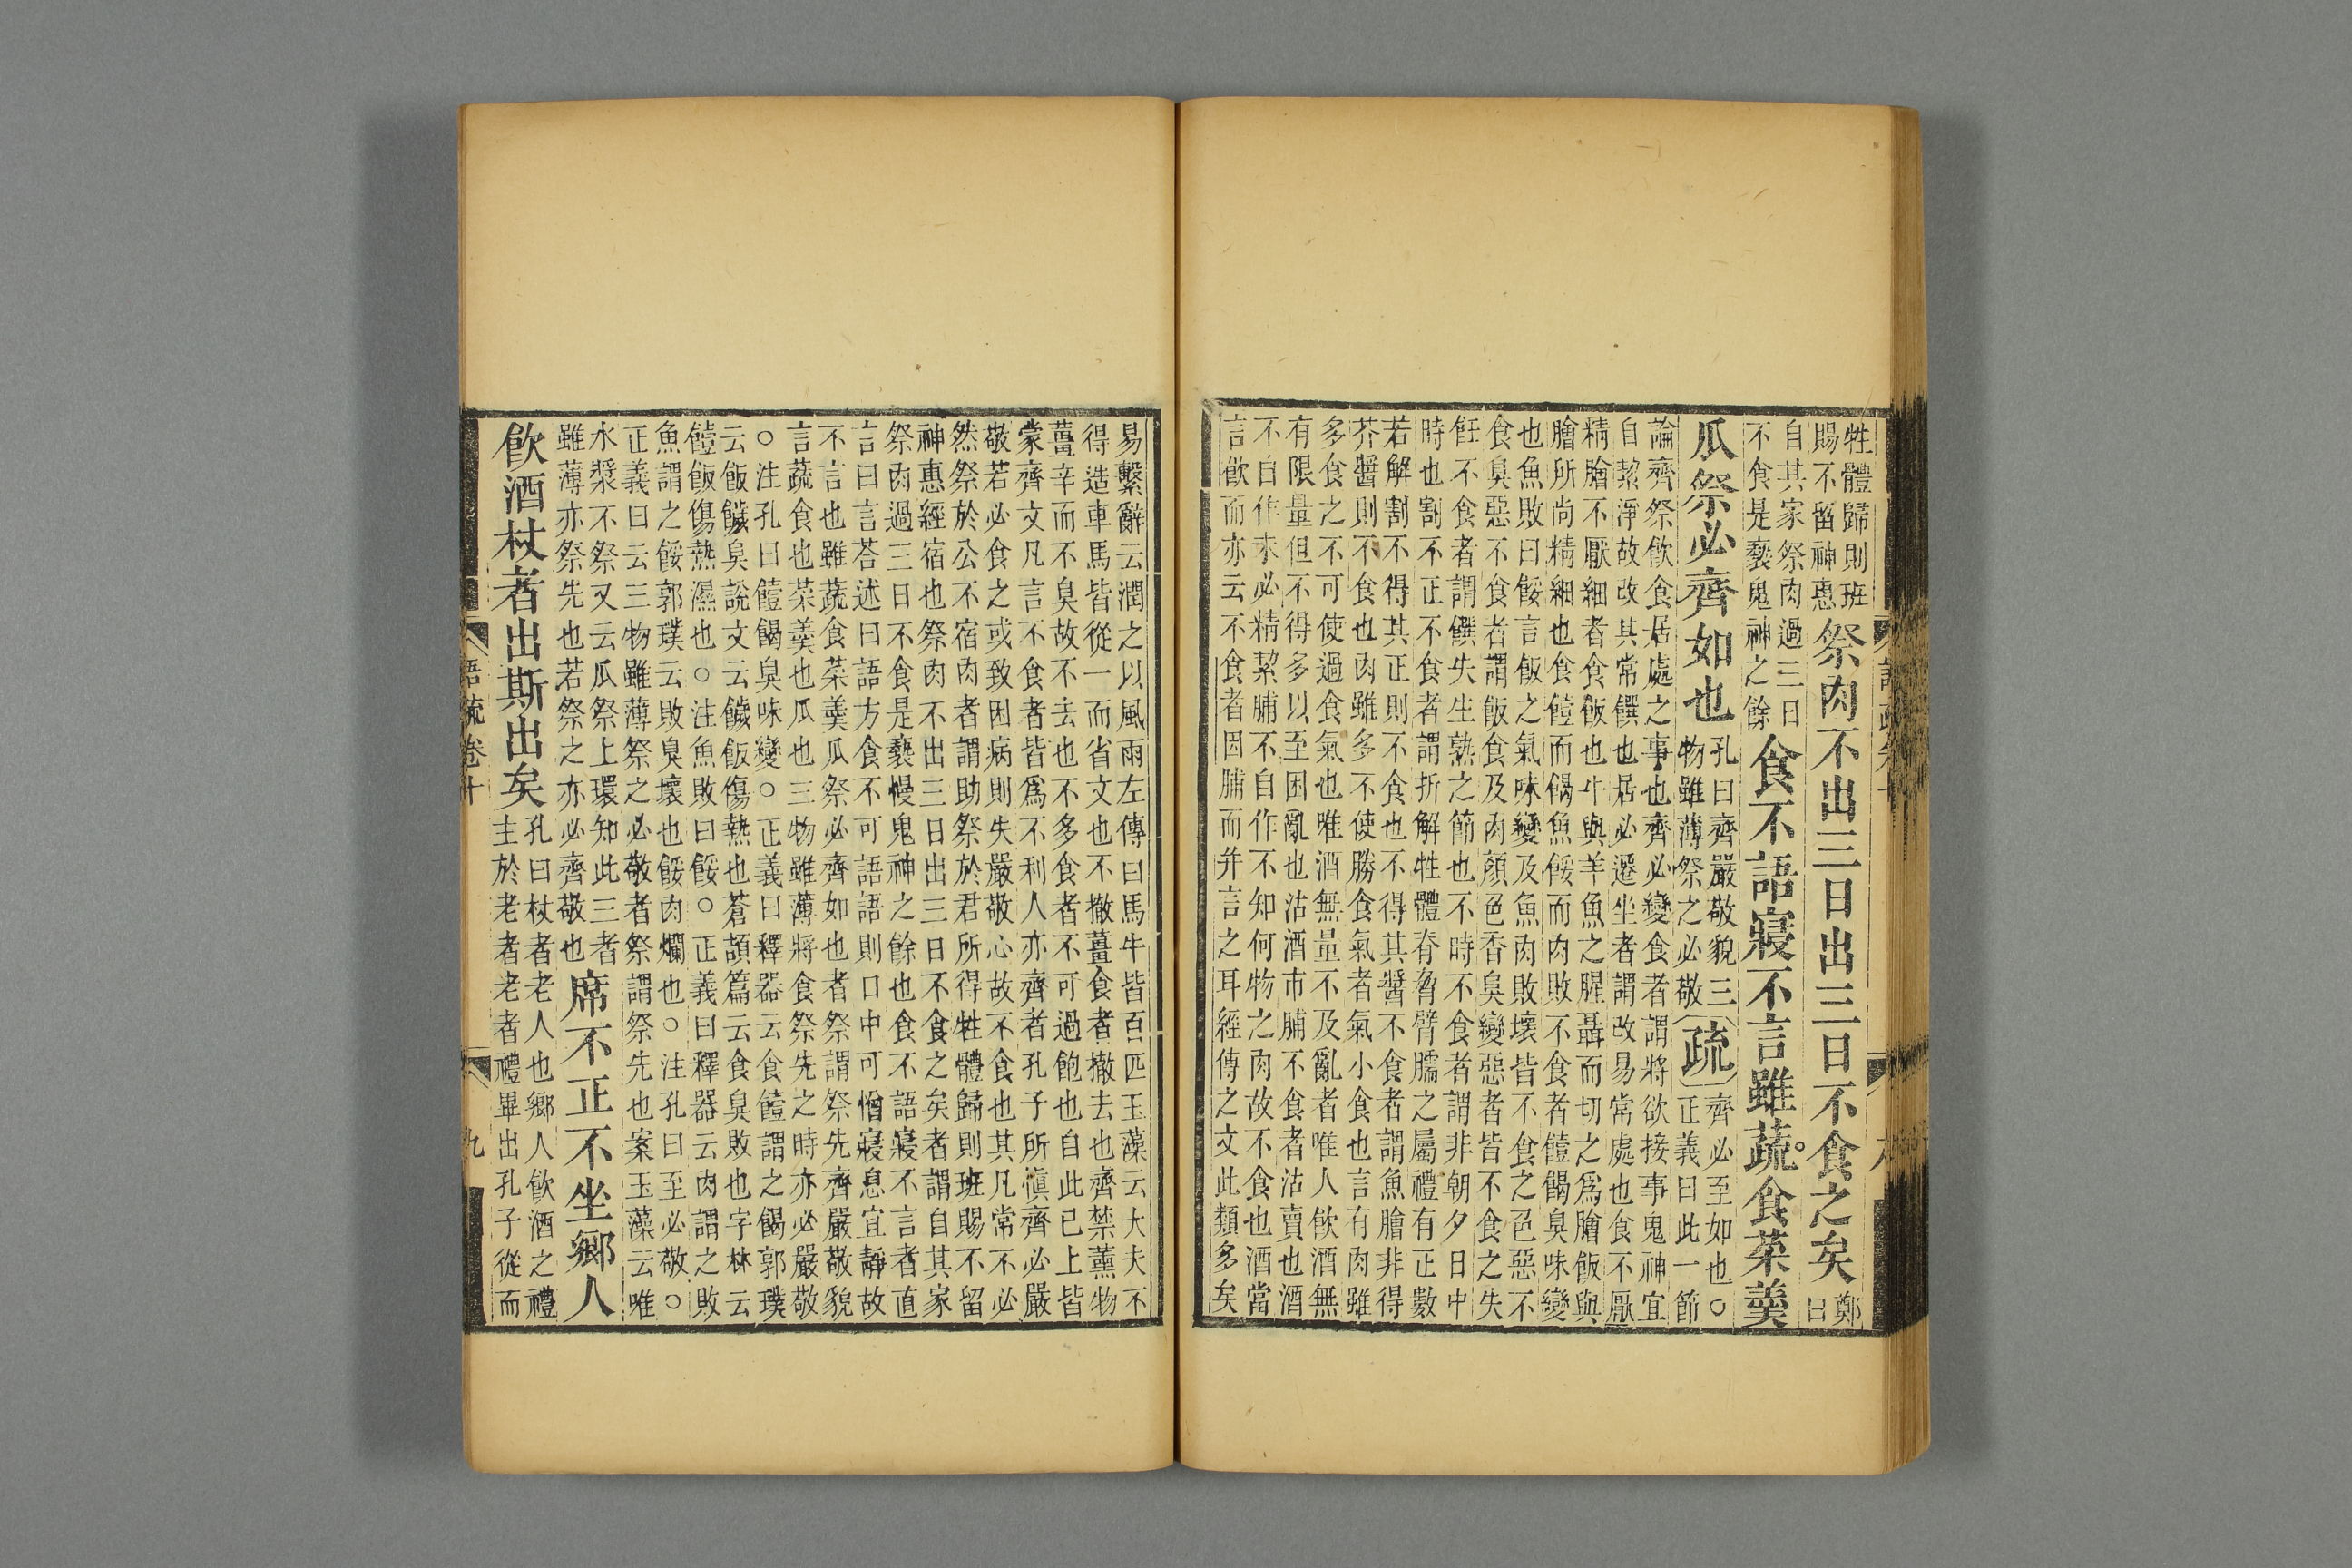 牲體歸則班
賜不留神惠
祭肉不出三日出三日不食之矣
鄭
曰
自其家祭肉過三日
不食是褻鬼神之餘
食不語寢不言雖蔬食菜羹
瓜祭必齊如也
孔曰齊嚴敬貌三
物雖薄祭之必敬
疏
齊必至如也○
正義曰此一節
論齊祭飲食居處之事也齊必變食者謂將欲接事鬼神宜
自絜淨故改其常饌也居必遷坐者謂改易常處也食不厭
精膾不厭細者食飯也牛與羊魚之腥聶而切之爲膾飯與
膾所尚精細也食饐而餲魚餒而肉敗不食者饐餲臭味變
也魚敗曰餒言飯之氣味變及魚肉敗壞皆不食之色惡不
食臭惡不食者謂飯食及肉顏色香臭變惡者皆不食之失
飪不食者謂饌失生熟之節也不時不食者謂非朝夕日中
時也割不正不食者謂折解牲體脊脅臂臑之屬禮有正數
若解割不得其正則不食也不得其醬不食者謂魚膾非得
芥醬則不食也肉雖多不使勝食氣者氣小食也言有肉雖
多食之不可使過食氣也唯酒無量不及亂者唯人飲酒無
有限量但不得多以至困亂也沽酒市脯不食者沽賣也酒
不自作未必精絜脯不自作不知何物之肉故不食也酒當
言飲而亦云不食者因脯而并言之耳經傳之文此類多矣
易繫辭云潤之以風雨左傳曰馬牛皆百匹玉藻云大夫不
得造車馬皆從一而省文也不撤薑食者撤去也齊禁薰物
薑辛而不臭故不去也不多食者不可過飽也自此已上皆
蒙齊文凡言不食者皆爲不利人亦齊者孔子所慎齊必嚴
敬若必食之或致困病則失嚴敬心故不食也其凡常不必
然祭於公不宿肉者謂助祭於君所得牲體歸則班賜不留
神惠經宿也祭肉不出三日出三日不食之矣者謂自其家
祭肉過三日不食是褻慢鬼神之餘也食不語寢不言者直
言曰言荅述曰語方食不可語語則口中可憎寢息宜靜故
不言也雖蔬食菜羹瓜祭必齊如也者祭謂祭先齊嚴敬貌
言蔬食也菜羹也瓜也三物雖薄將食祭先之時亦必嚴敬
○注孔曰饐餲臭味變○正義曰釋器云食饐謂之餲郭璞
云飯饖臭說文云饖飯傷熱也蒼頡篇云食臭敗也字林云
饐飯傷熱濕也○注魚敗曰餒○正義曰釋器云肉謂之敗
魚謂之餒郭璞云敗臭壞也餒肉爛也○注孔曰至必敬○
正義曰云三物雖薄祭之必敬者祭謂祭先也案玉藻云唯
水漿不祭又云瓜祭上環知此三者
雖薄亦祭先也若祭之亦必齊敬也
席不正不坐鄉人
飲酒杖者出斯出矣
孔曰杖者老人也鄉人飲酒之禮
主於老者老者禮畢出孔子從而
語疏卷十
九